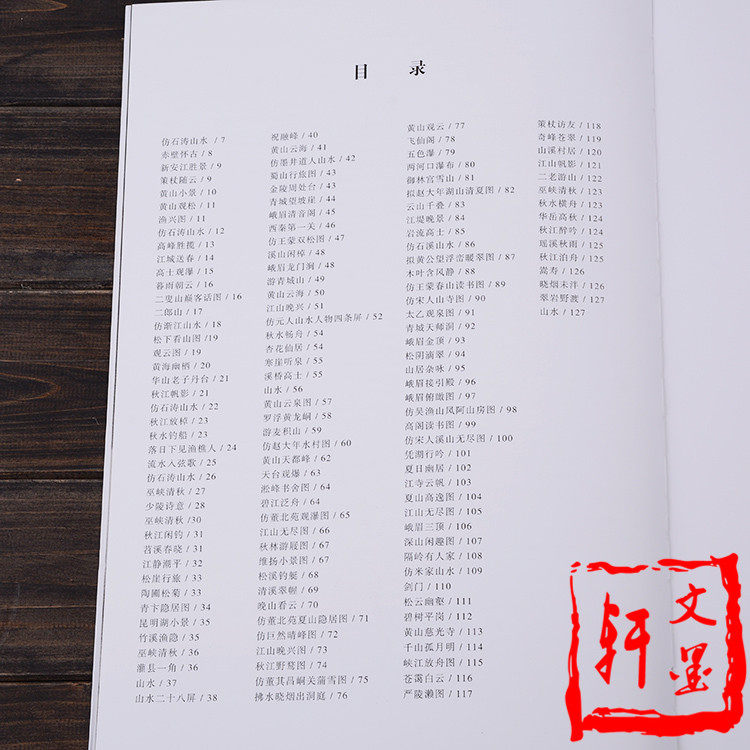 目 录
仿石涛山水 / 7
赤壁怀古 / 8
新安江胜景 / 9
策杖随云 / 9
黄山小景 / 10
黄山观松 / 11
渔兴图 / 11
仿石涛山水 / 12
高峰胜揽 / 13
江城送春 / 14
高士观瀑 / 15
暮雨朝云 / 16
二叟山巅客话图 / 16
二郎山 / 17
仿渐江山水 / 18
松下看山图 / 19
观云图 / 19
黄海幽栖 / 20
华山老子丹台 / 21
秋江帆影 / 21
仿石涛山水 / 22
秋江放棹 / 23
秋水钓船 / 23
落日下见渔樵人 / 24
流水入弦歌 / 25
仿石涛山水 / 26
巫峡清秋 / 27
少陵诗意 / 28
巫峡清秋 / 30
秋江闲钓 / 31
苕溪春晓 / 31
江静潮平 / 32
松崖行旅 / 33
陶圃松菊 / 33
青卞隐居图 / 34
昆明湖小景 / 35
竹溪渔隐 / 35
巫峡清秋 / 36
灌县一角 / 36
山水 / 37
山水二十八屏 / 38
祝融峰 / 40
黄山云海 / 41
仿墨井道人山水 / 42
蜀山行旅图 / 43
金陵周处台 / 43
青城望坡崖 / 44
峨眉清音阁 / 45
西秦第一关 / 46
仿王蒙双松图 / 47
溪山闲棹 / 48
峨眉龙门洞 / 48
游青城山 / 49
黄山云海 / 50
江山晚兴 / 51
仿元人山水人物四条屏 / 52
秋水杨舟 / 54
杏花仙居 / 54
寒崖听泉 / 55
溪桥高士 / 55
山水 / 56
黄山云泉图 / 57
罗浮黄龙峒 / 58
游麦积山 / 59
仿赵大年水村图 / 60
黄山天都峰 / 62
天台观瀑 / 63
淞峰书舍图 / 64
碧江泛舟 / 64
仿董北苑观瀑图 / 65
江山无尽图 / 66
秋林游屐图 / 67
维扬小景图 / 67
松溪钓艇 / 68
清溪翠幄 / 69
晚山看云 / 70
仿董北苑夏山隐居图 / 71
仿巨然晴峰图 / 72
江山晚兴图 / 73
秋江野鹜图 / 74
仿董其昌峒关蒲雪图 / 75
拂水晓烟出洞庭 / 76
黄山观云 / 77
飞仙阁 / 78
五色瀑 / 79
两河口瀑布 / 80
御林宫雪山 / 81
拟赵大年湖山清夏图 / 82
云山千叠 / 83
江堤晚景 / 84
岩流高士 / 85
仿石溪山水 / 86
拟黄公望浮峦暖翠图 / 87
木叶含风静 / 88
仿王蒙春山读书图 / 89
仿宋人山寺图 / 90
太乙观泉图 / 91
青城天师洞 / 92
峨眉金顶 / 93
松阴滴翠 / 94
山居杂咏 / 95
峨眉接引殿 / 96
峨眉俯瞰图 / 97
仿吴渔山风阿山房图 / 98
高阁读书图 / 99
仿宋人溪山无尽图 / 100
凭湖行吟 / 101
夏日幽居 / 102
江寺云帆 / 103
夏山高逸图 / 104
江山无尽图 / 105
峨眉三顶 / 106
深山闲趣图 / 107
隔岭有人家 / 108
仿米家山水 / 109
剑门 / 110
松云幽壑 / 111
碧树平岗 / 112
黄山慈光寺 / 113
千山孤月明 / 114
峡江放舟图 / 115
苍霭白云 / 116
严陵濑图 / 117
策杖访友 / 118
奇峰苍翠 / 119
山溪村居 / 120
江山帆影 / 121
二老游山 / 122
巫峡清秋 / 123
秋水横舟 / 123
华岳高秋 / 124
秋江醉吟 / 124
瑶溪秋雨 / 125
秋江泊舟 / 125
嵩寿 / 126
晓烟未泮 / 126
翠岩野渡 / 127
山水 / 127
文墨轩